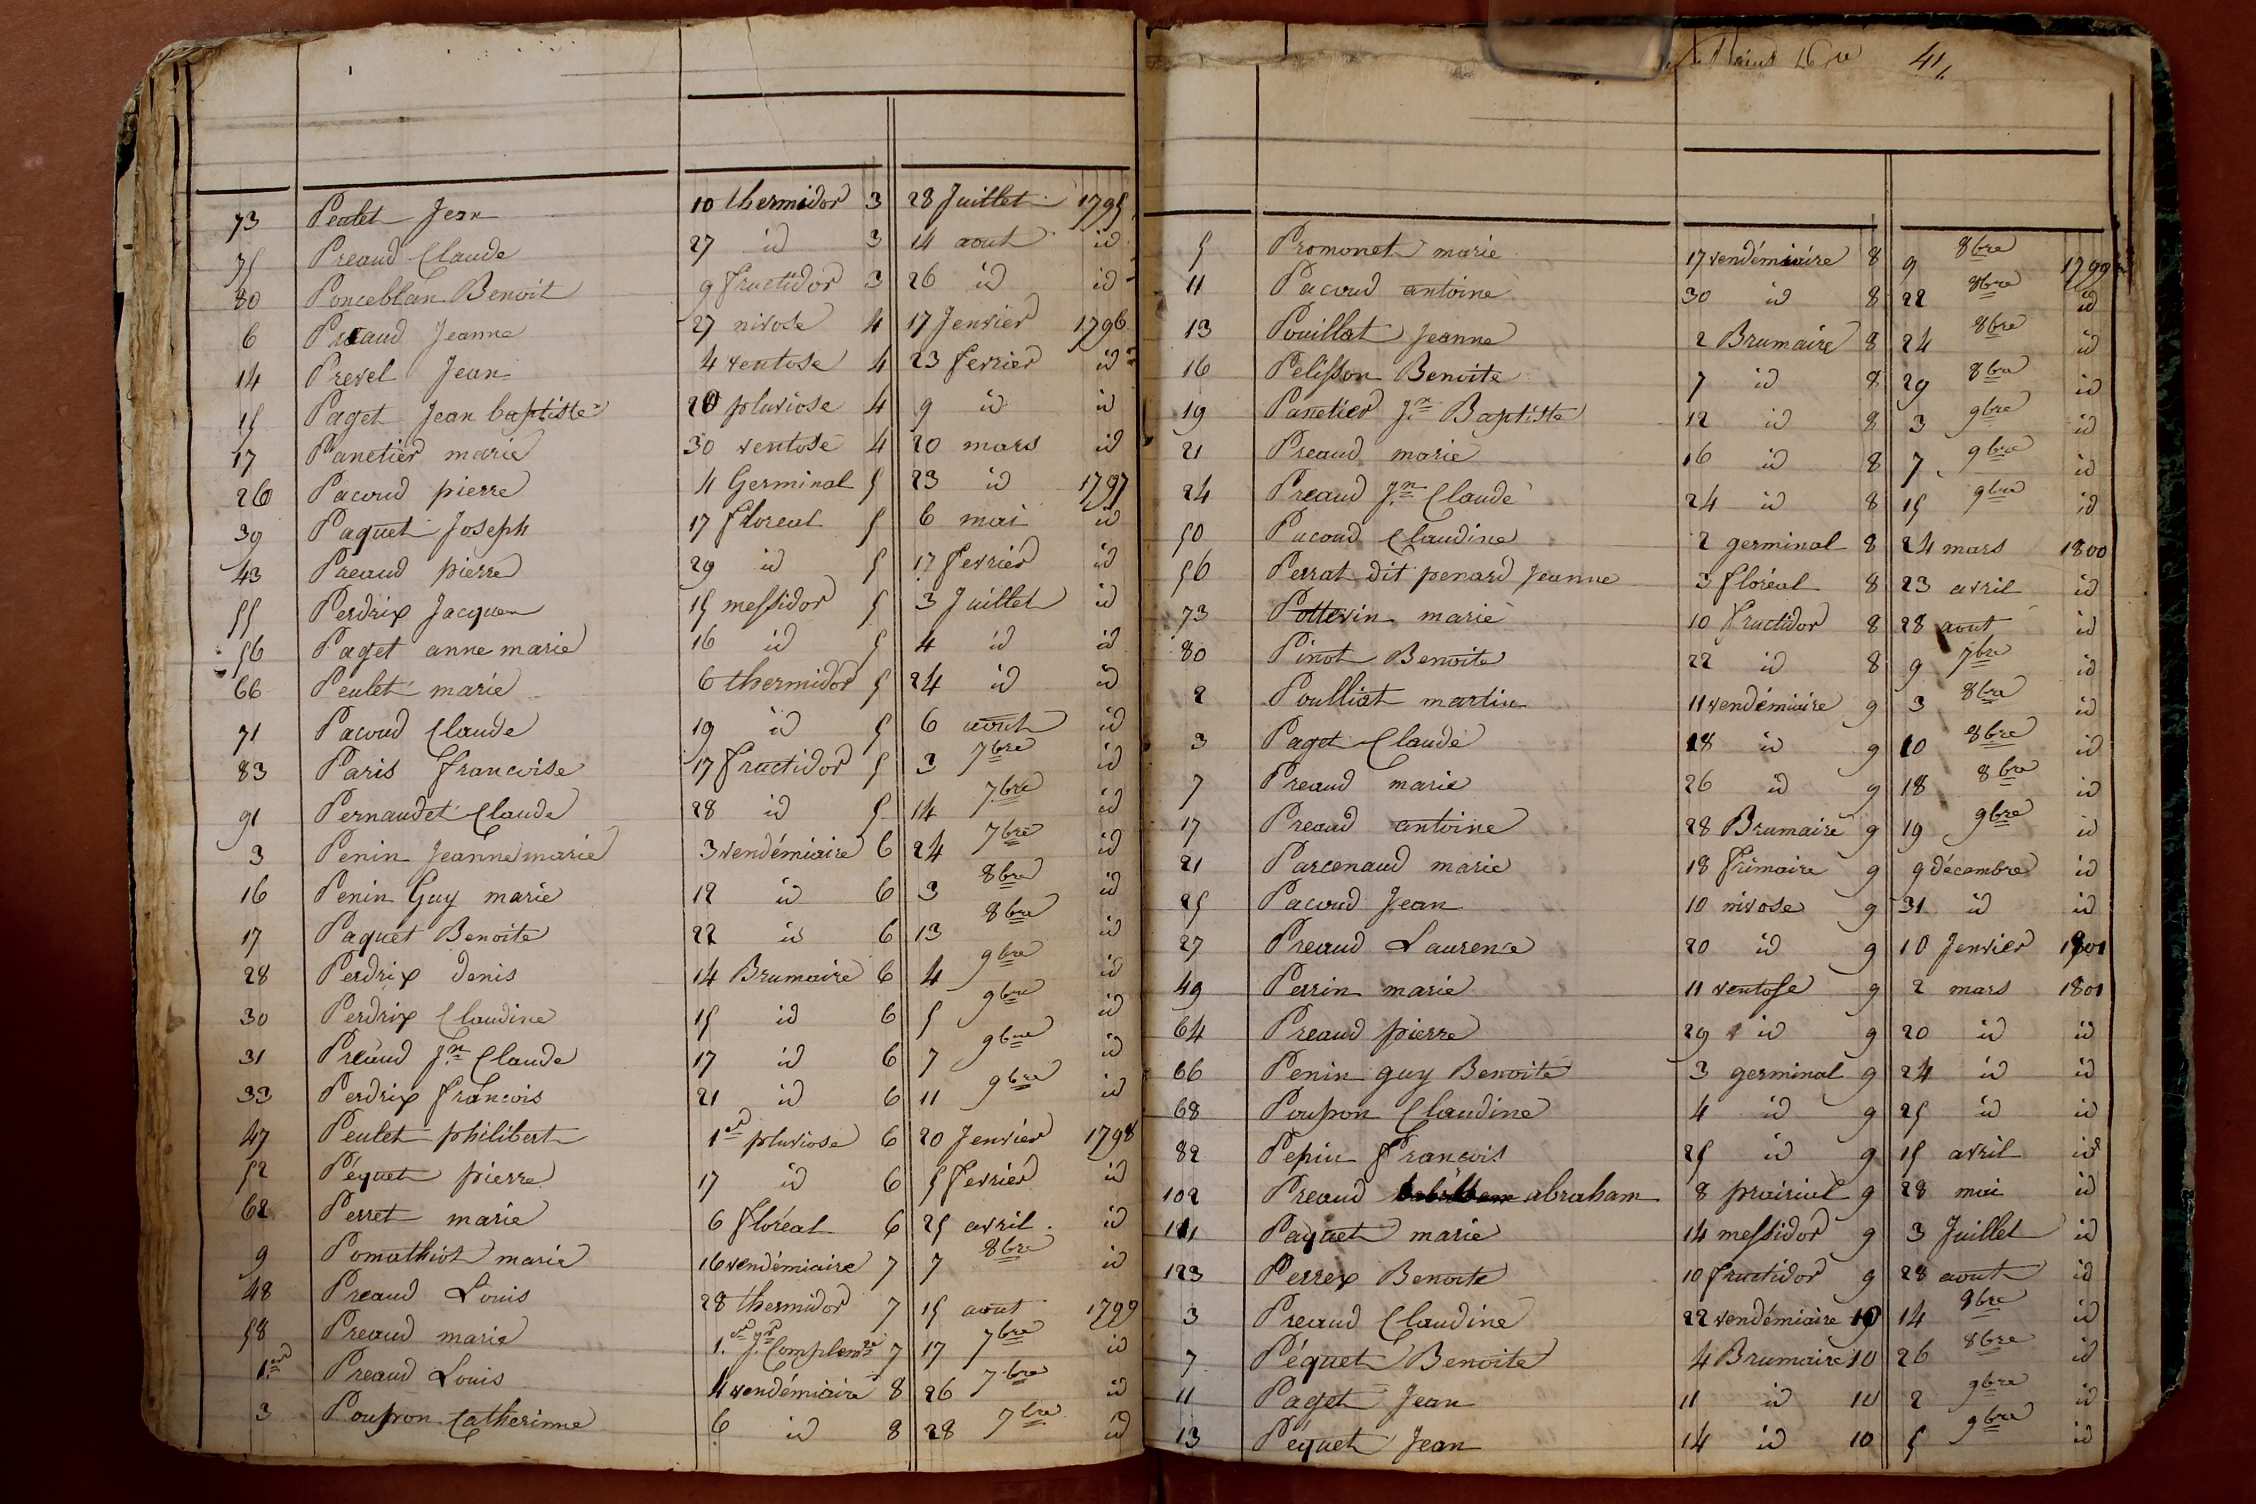 73 Peulet Jean 10 thermidor 3 28 Juillet 1795
75 Preaud Claude 27 id 3 14 aout id
80 Ponceblan Benoit 9 fructidor 3 26 id id
6 Preaud Jeanne 27 nivose 4 17 Jenvier 1796
14 Prevel Jean 4 ventose 4 23 fevrier id
15 Paget Jean baptiste 20 pluviose 4 9 id id
17 Panetier marie 30 ventose 4 20 mars id
26 Pacoud pierre 4 Germinal 5 23 id 1797
39 Paquet Joseph 17 floreal 5 6 mai id
43 Preaud pierre 29 id 5 17 fevrier id
55 Perdrix Jacques 15 messidor 5 3 Juillet id
56 Paget anne marie 16 id 5 4 id id
66 Peulet marie 6 thermidor 5 24 id id
71 Pacoud Claude 19 id 5 6 aout id
83 Paris francoise 17 fructidor 5 3 7bre id
91 Pernaudet Claude 28 id 5 14 7bre id
3 Penin Jeanne marie 3 vendémiaire 6 24 7bre id
16 Penin Guy marie 12 id 6 3 8bre id
17 Paquet Benoite 22 id 6 13 8bre id
28 Perdrix denis 14 Brumaire 6 4 9bre id
30 Perdrix Claudine 15 id 6 5 9bre id
31 Preaud Jn Claude 17 id 6 7 9bre id
33 Perdrix francois 21 id 6 11 9bre id
47 Peulet philibert 1er pluviose 6 20 Jenvier 1798
52 Péquet pierre 17 id 6 5 fevrier id
62 Perret marie 6 floréal 6 25 avril id
9 Pomathiot marie 16 vendémiaire 7 7 8bre id
48 Preaud Louis 28 thermidor 7 15 aout 1799
58 Preaud marie 1.er Jr Complemre 7 17 7bre id
1er Preaud Louis 4 vendémiaire 8 26 7bre id
3 Poupon Catherinne 6 id 8 28 7bre id
41
5 Promonet marie 17 vendémiaire 8 9 8bre 1799
11 Pacoud antoine 30 id 8 22 8bre id
13 Pouillat Jeanne 2 Brumaire 8 24 8bre id
16 Pelisson Benoite 7 id 8 29 8bre id
19 Panetier Jn Baptiste 12 id 8 3 9bre id
21 Preaud marie 16 id 8 7 9bre id
24 Preaud Jn Claude 24 id 8 15 9bre id
50 Pacoud Claudine 2 germinal 8 24 mars 1800
56 Perrat dit penard Jeanne 3 floréal 8 23 avril id
73 Pottevin marie 10 fructidor 8 28 aout id
80 Pinot Benoite 22 id 8 9 7bre id
2 Poulliat martin 11 vendémiaire 9 3 8bre id
3 Paget Claude 18 id 9 10 8bre id
7 Preaud marie 26 id 9 18 8bre id
17 Preaud antoine 28 Brumaire 9 19 9bre id
21 Parcenaud marie 18 frimaire 9 9 décembre id
25 Pacoud Jean 10 nivose 9 31 id id
27 Preaud Laurence 20 id 9 10 Jenvier 1801
49 Perrin marie 11 ventose 9 2 mars 1801
64 Preaud pierre 29 id 9 20 id id
66 Penin guy Benoite 3 germinal 9 24 id id
68 Poupon Claudine 4 id 9 25 id id
82 Pepin francois 25 id 9 15 avril id
102 Preaud abraham 8 prairial 9 28 mai id
111 Paquet marie 14 messidor 9 3 Juillet id
123 Perrex Benoite 10 fructidor 9 28 aout id
3 Preaud Claudine 22 vendémiaire 10 14 8bre id
7 Péquet Benoite 4 Brumaire 10 26 8bre id
11 Paget Jean 11 id 10 2 9bre id
13 Péquet Jean 14 id 10 5 9bre id